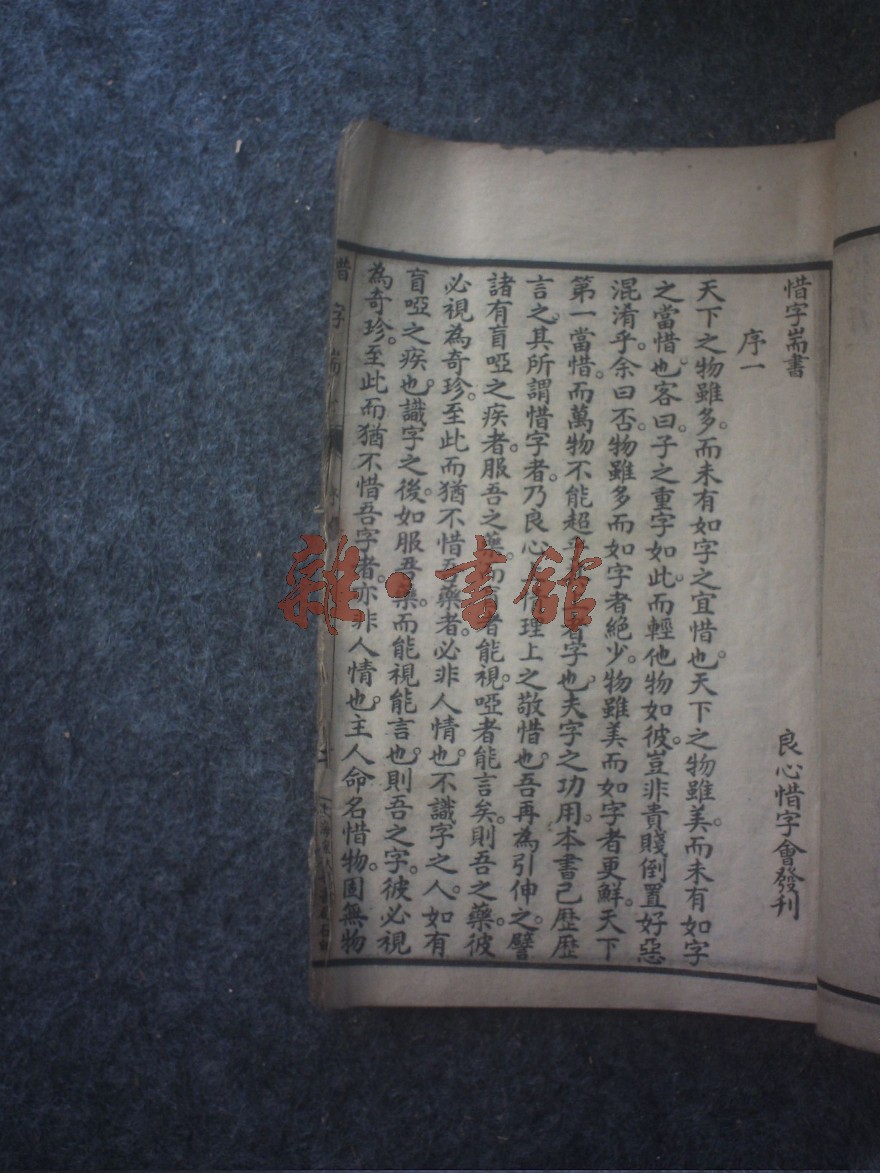 惜字耑書
良心惜字會發刊
序一
天下之物雖多。而未有如字之宜惜也。天下之物雖美。而未有如字
之當惜也。客曰。子之重字如此。而輕他物如彼。豈非貴賤倒置好惡
混淆乎。余曰。否。物雖多而如字者絶少。物雖美而如字者更鮮。天下
第一當惜。而萬物不能超乎其上者字也。夫字之功用。本書已歷歷
言之。其所謂惜字者。乃良心上情理上之敬惜也。吾再為引伸之。譬
諸有盲啞之疾者。服吾之藥。而盲者能視。啞者能言矣。則吾之藥。彼
必視為奇珍。至此而猶不惜吾藥者。必非人情也。不識字之人。如有
盲啞之疾也。識字之後。如服吾藥。而能視能言也。則吾之字。彼必視
為奇珍。至此而猶不惜吾字者。亦非人情也。主人命名惜物。固無物
惜字耑
雜·書館